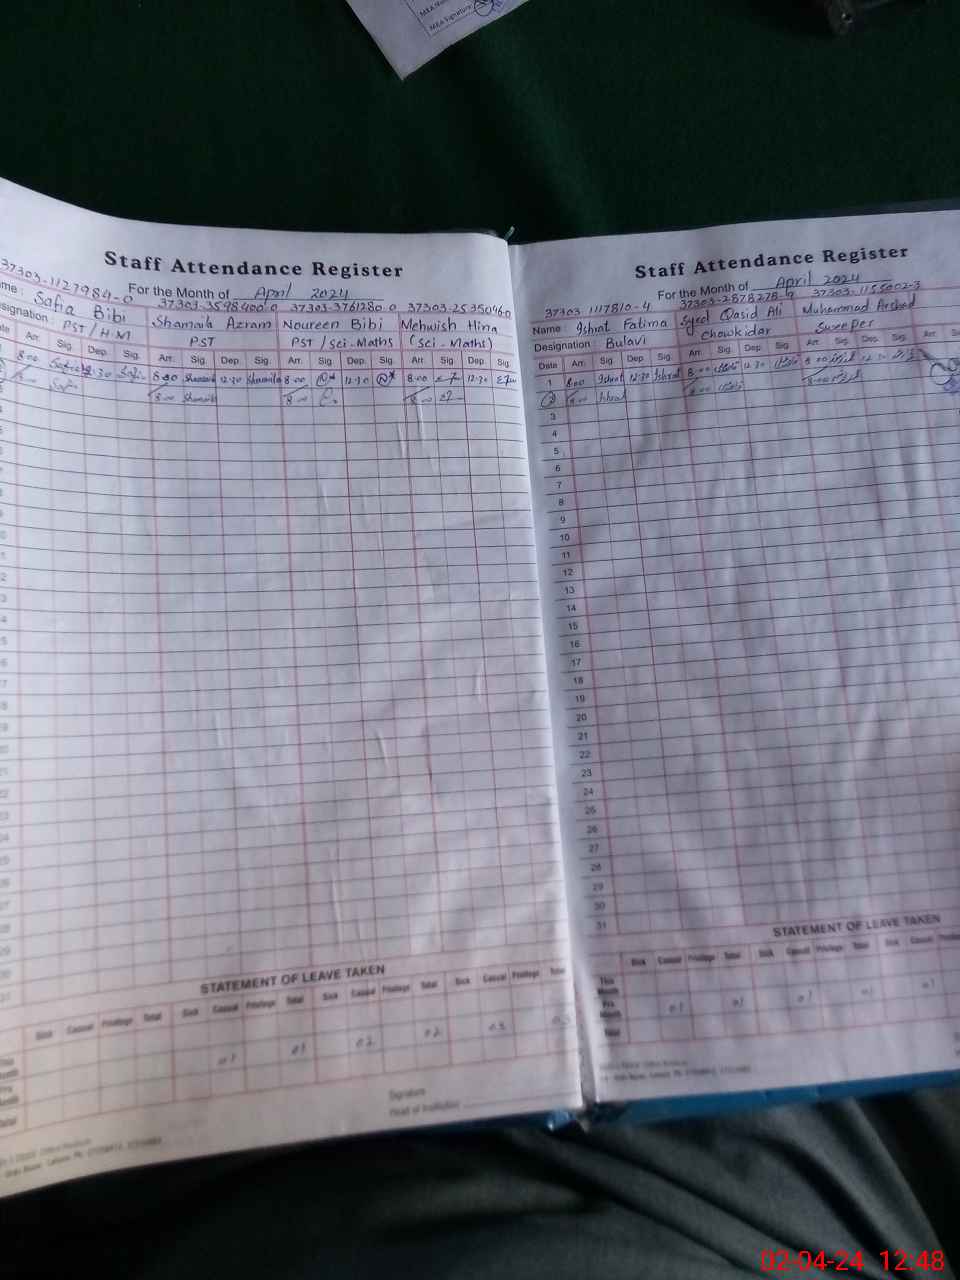 MEA Signature
Staff Attendance Register
For the Month of April 2024
37303-1127984-0 37303-3598400-0 37303-3761280-0 37303-2535046-0
me : Safia Bibi Shamaila Azram Noureen Bibi Mehwish Hina
signation : PST / H.M PST PST / Sci-Maths (Sci-Maths)
ate Arr. Sig. Dep. Sig. Arr. Sig. Dep. Sig. Arr. Sig. Dep. Sig. Arr. Sig. Dep. Sig.
8.00 Safia 12.30 Safia 8.00 Shamaila 12.30 Shamaila 8.00 12.30 8.00 12.30
8.00 Safia 8.00 Shamaila 8.00 8.00
STATEMENT OF LEAVE TAKEN
Sick Casual Privilege Total Sick Casual Privilege Total Sick Casual Privilege Total Sick Casual Privilege Total
01 01 02 02 03 03
Signature
Head of Institution
Staff Attendance Register
For the Month of April 2024
37303-1117810-4 37303-2878278-9 37303-1155002-3
Name : Ishrat Fatima Syed Qasid Ali Muhammad Arshad
Designation : Bulavi chowkidar Sweeper
Date Arr. Sig. Dep. Sig. Arr. Sig. Dep. Sig. Arr. Sig. Dep. Sig. Arr.
1 8.00 Ishrat 12.30 Ishrat 8.00 12.30 8.00 12.30
2 8.00 Ishrat 8.00 8.00
3
4
5
6
7
8
9
10
11
12
13
14
15
16
17
18
19
20
21
22
23
24
25
26
27
28
29
30
31
STATEMENT OF LEAVE TAKEN
Sick Casual Privilege Total Sick Casual Privilege Total Sick Casual
This Month
Pre. Month 01 01 01 01 01
Total
02-04-24 12:48